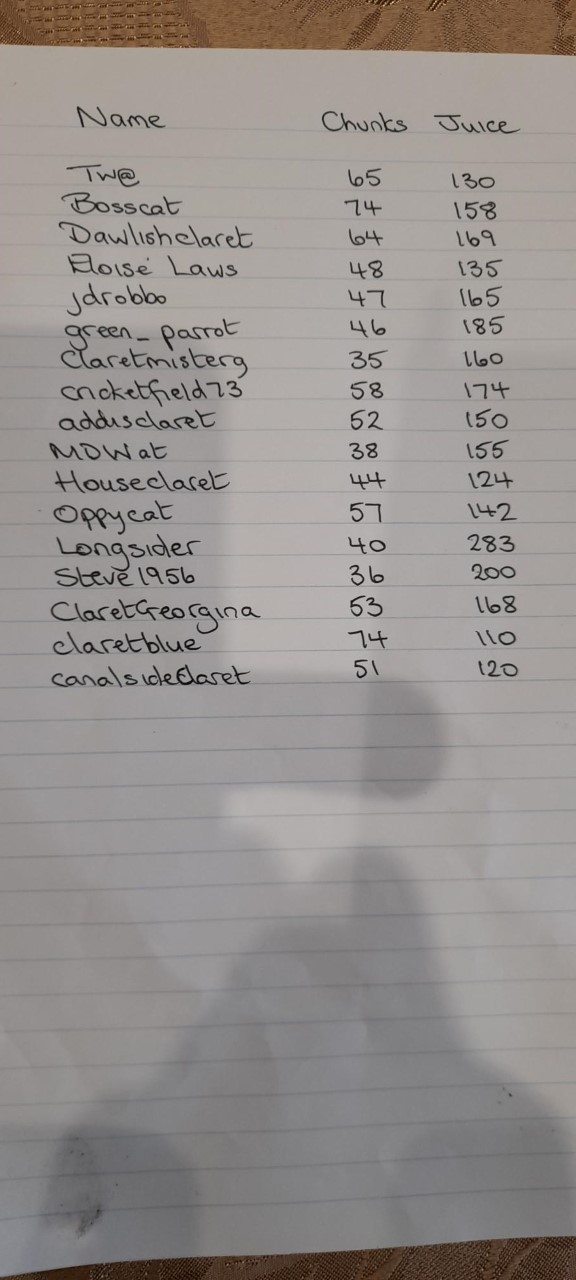 Name Chunks Juice
Tw@ 65 130
Bosscat 74 158
Dawlishclaret 64 169
Eloise Laws 48 135
jdrobbo 47 165
green_parrot 46 185
Claretmisterg 35 160
cricketfield73 58 174
addisclaret 52 150
MDWat 38 155
Houseclaret 44 124
Oppycat 57 142
Longsider 40 283
Steve1956 36 200
ClaretGeorgina 53 168
claretblue 74 110
canalsideClaret 51 120